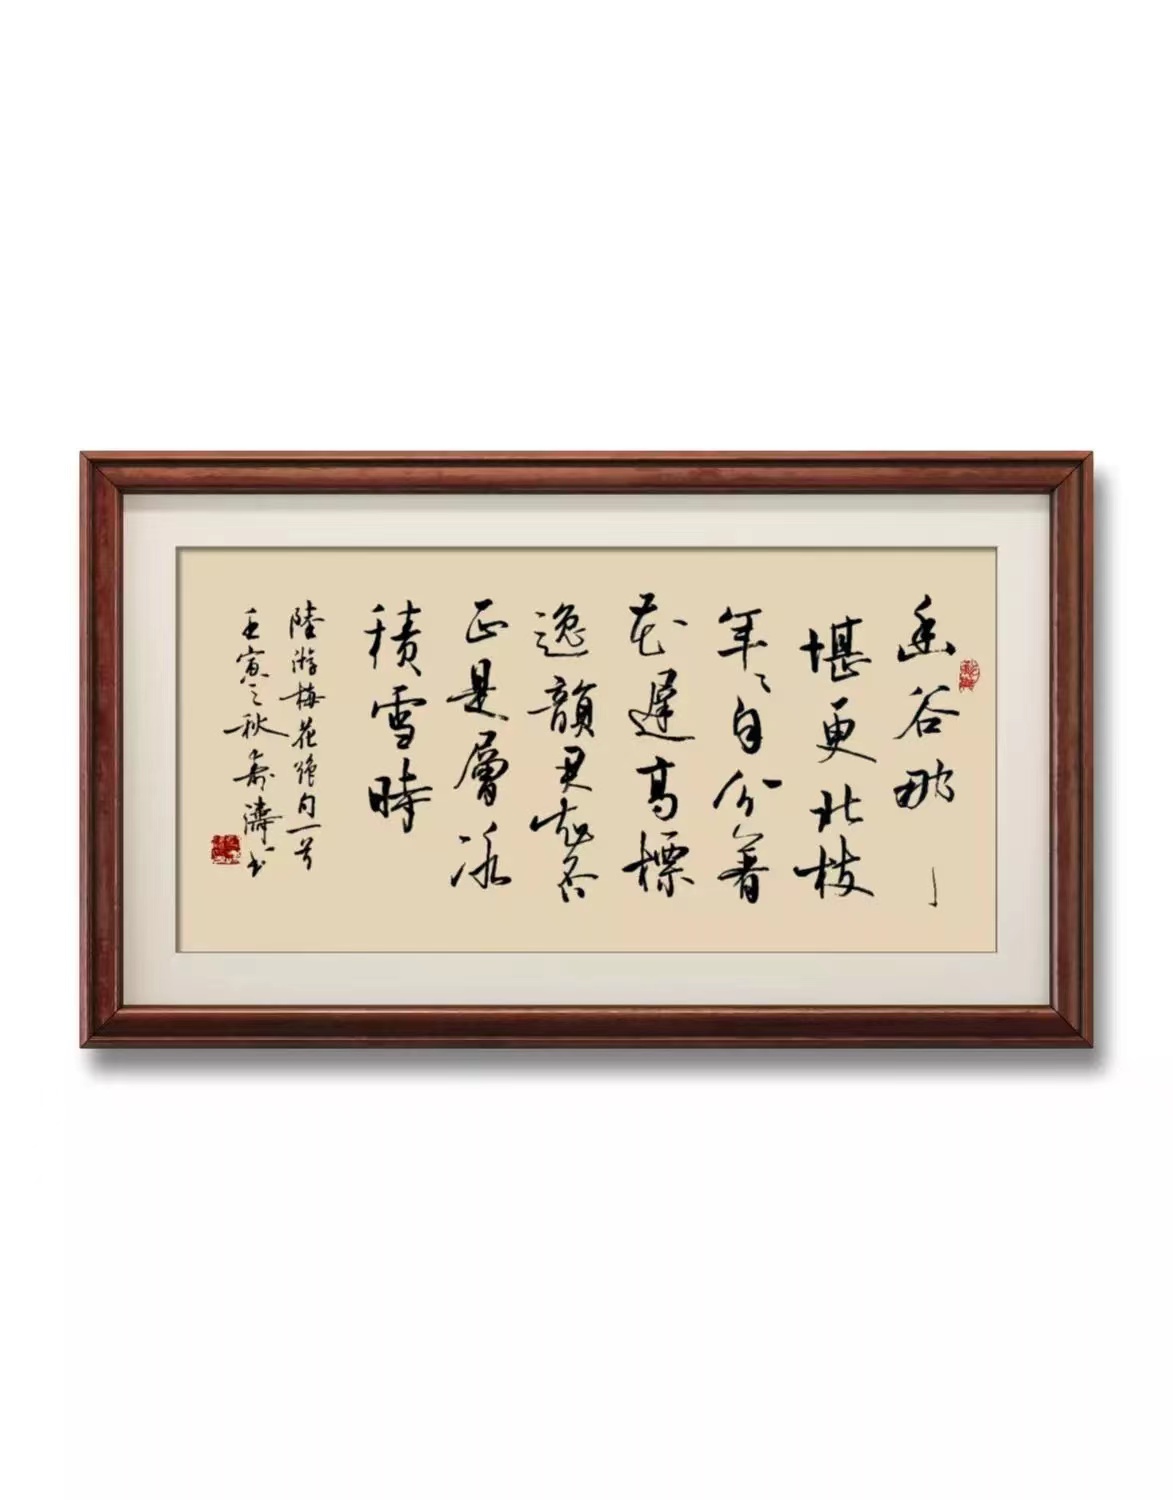 幽谷那
堪更北枝
年々自分着
花遲高標
逸韻君知否
正是層冰
積雪時
陸游梅花絶句一首
壬寅之秋壽濤書